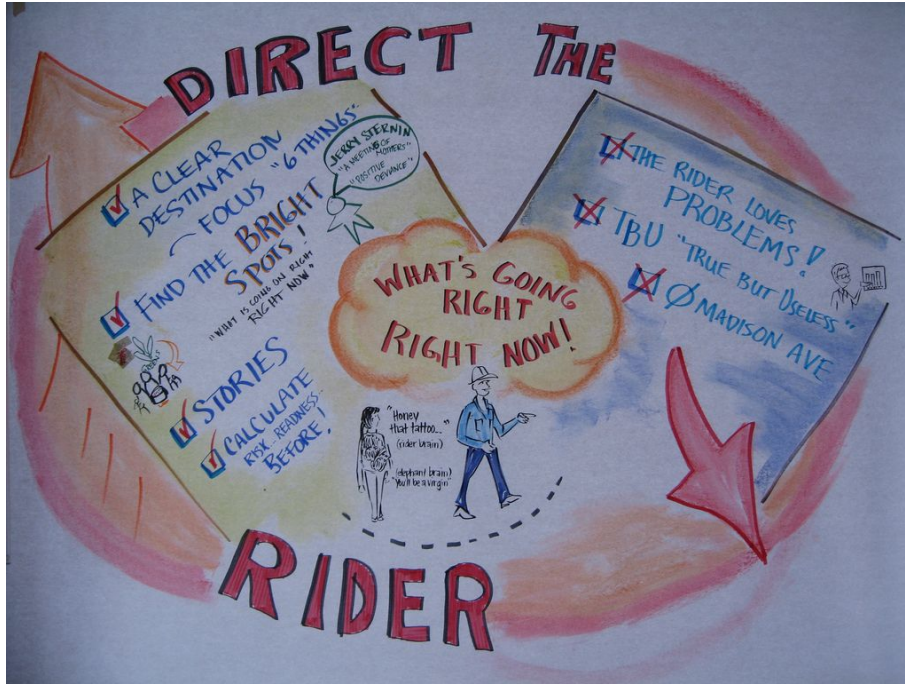 DIRECT THE
A CLEAR
DESTINATION
FOCUS "6 THINGS"
FIND THE BRIGHT
SPOTS!
"WHAT IS GOING ON RIGHT
RIGHT NOW"
STORIES
CALCULATE
RISK... READNESS
BEFORE!
JERRY STERNIN
"A MEETING OF
MOTHERS"
"POSITIVE
DEVIANCE"
WHAT'S GOING
RIGHT
RIGHT NOW!
"Honey
that tattoo..."
(rider brain)
(elephant brain)
"You'll be a virgin"
THE RIDER LOVES
PROBLEMS!
TBU "TRUE BUT USELESS"
Ø MADISON AVE
RIDER